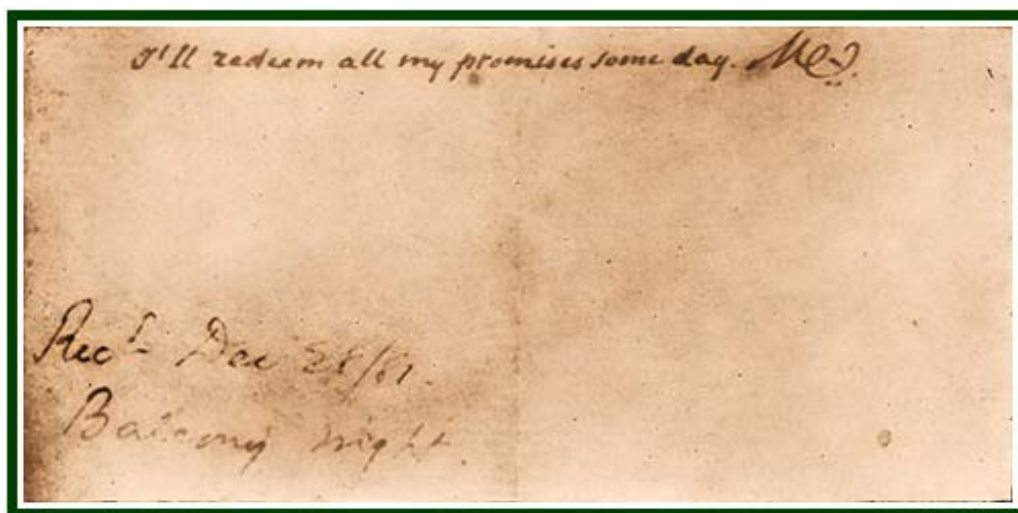 I'll redeem all my promises some day. M∴
Recd Dec 28/81.
Balcony night.